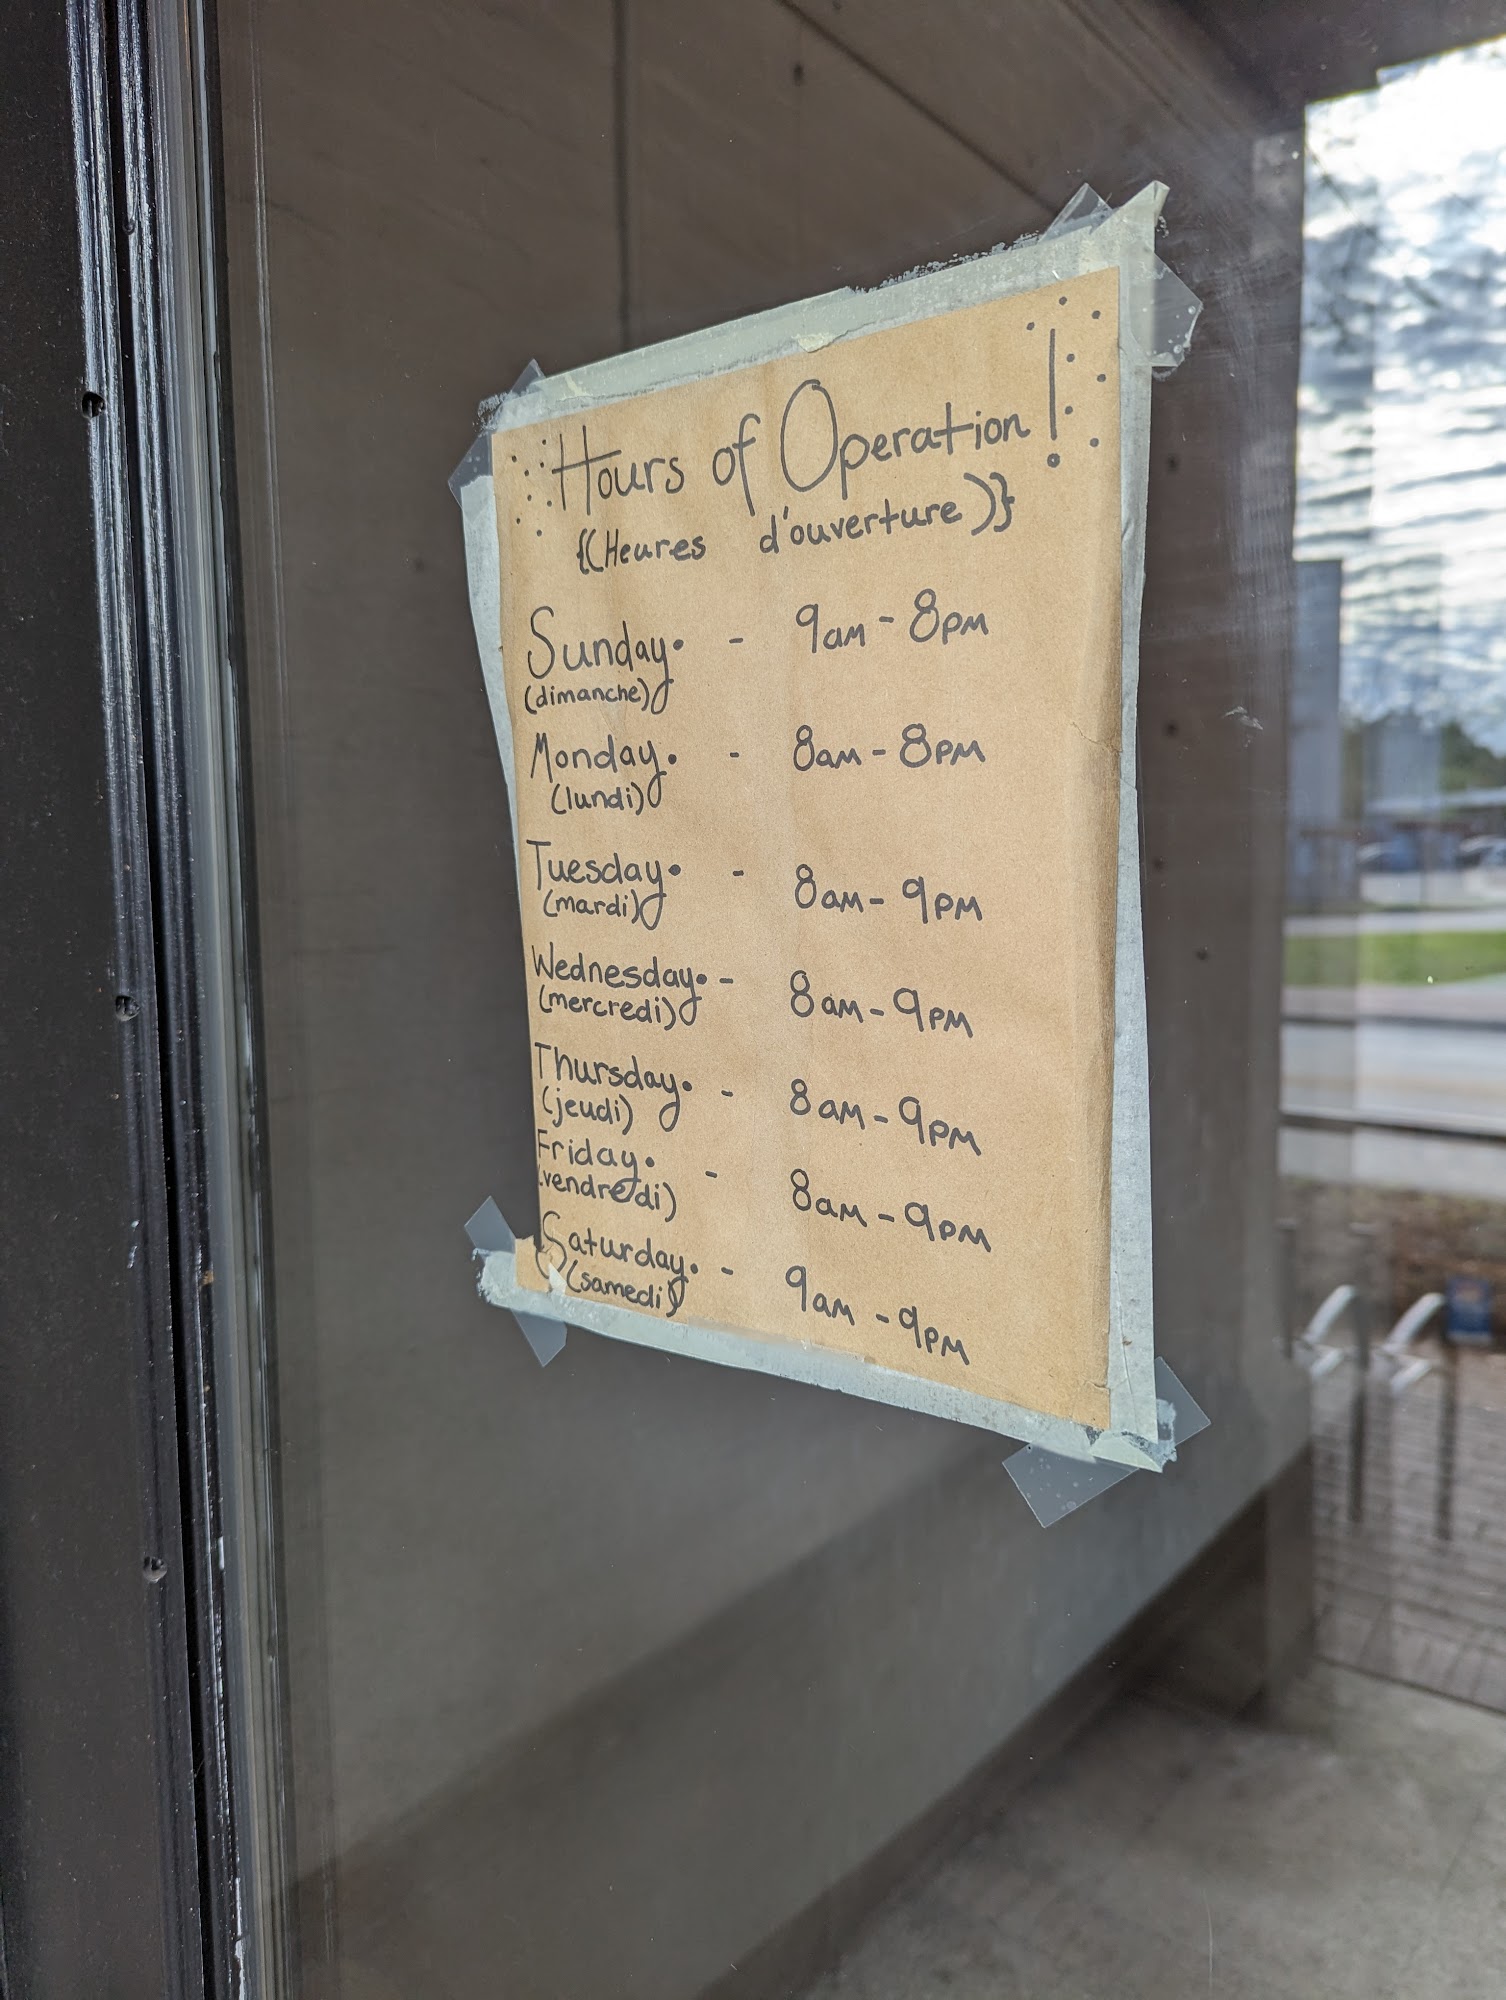 Hours of Operation!
{(Heures d'ouverture)}
Sunday. - 9am - 8pm
(dimanche)
Monday. - 8am - 8pm
(lundi)
Tuesday. - 8am - 9pm
(mardi)
Wednesday. - 8am - 9pm
(mercredi)
Thursday. - 8am - 9pm
(jeudi)
Friday. - 8am - 9pm
(vendredi)
Saturday. - 9am - 9pm
(samedi)